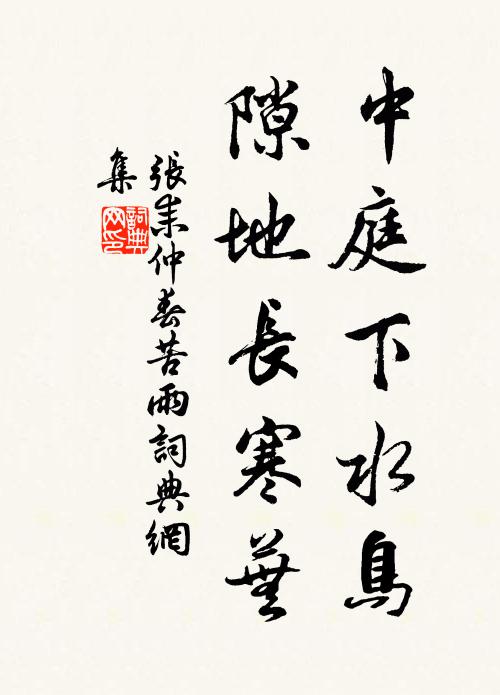 中庭下水鳥
隙地長寒蕪
張耒仲春苦雨詞典網
集
詞典
网印